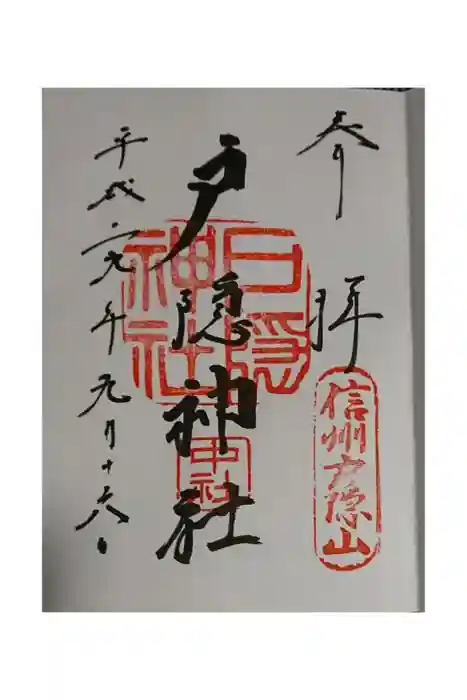 奉拝
信州戸隠山
戸隠神社
戸隠神社
中社
平成二九年九月十六日